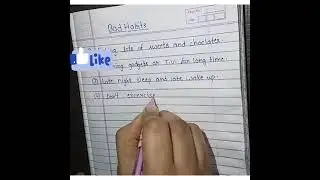 Bad Habits
lots of sweets and choclates
gadgets or T.V for long time.
Late night sleep and late wake up.
Don't excercise
Like